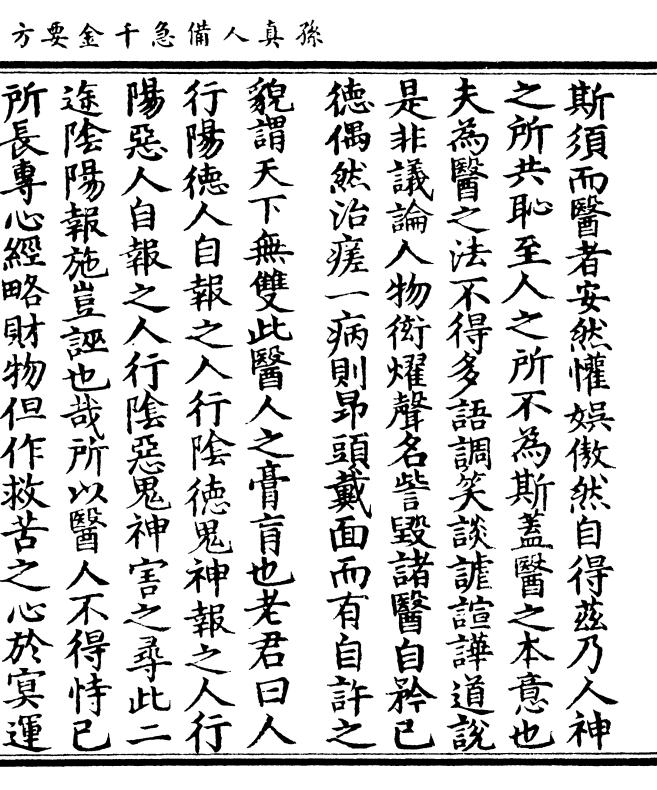 孫真人備急千金要方
斯須而醫者安然懽娯傲然自得茲乃人神
之所共恥至人之所不為斯蓋醫之本意也
夫為醫之法不得多語調笑談謔諠譁道說
是非議論人物衒燿聲名訾毀諸醫自矜已
德偶然治瘥一病則昂頭戴面而有自許之
貌謂天下無雙此醫人之膏肓也老君曰人
行陽德人自報之人行陰德鬼神報之人行
陽惡人自報之人行陰惡鬼神害之尋此二
途陰陽報施豈誣也哉所以醫人不得恃已
所長專心經略財物但作救苦之心於冥運